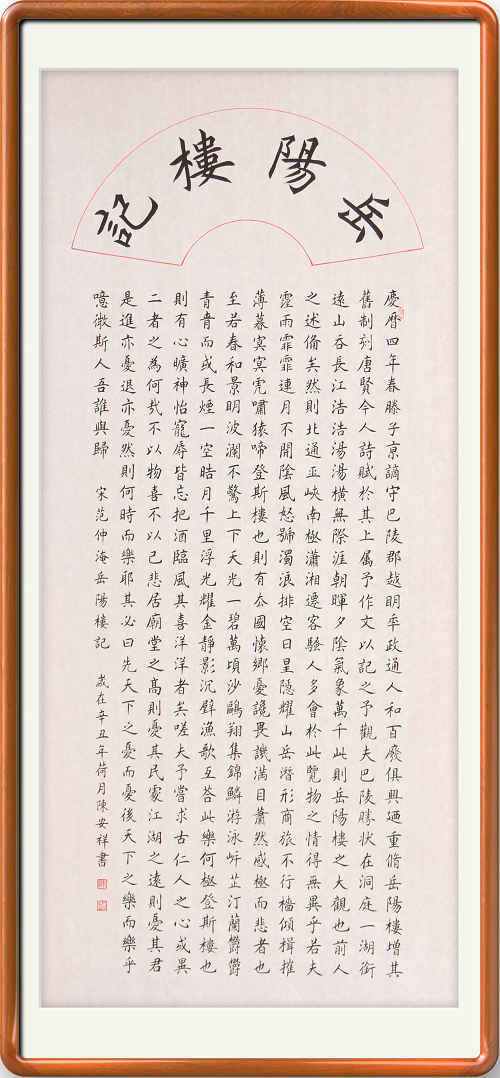 岳陽樓記
慶曆四年春滕子亰謫守巴陵郡越明年政通人和百廢俱興廼重脩岳陽樓增其
舊制刻唐賢今人詩賦於其上属予作文以記之予觀夫巴陵勝狀在洞庭一湖銜
遠山吞長江浩浩湯湯橫無際涯朝暉夕陰氣象萬千此則岳陽樓之大觀也前人
之述俻矣然則北通巫峽南極瀟湘遷客騷人多會於此覽物之情得無異乎若夫
霪雨霏霏連月不開陰風怒號濁浪排空日星隱耀山岳潛形商旅不行檣傾楫摧
薄暮冥冥虎嘯猿啼登斯樓也則有去國懷鄉憂讒畏譏滿目蕭然感極而悲者也
至若春和景明波瀾不驚上下天光一碧萬頃沙鷗翔集錦鱗游泳岸芷汀蘭鬱鬱
青青而或長煙一空皓月千里浮光耀金靜影沉璧漁歌互荅此樂何極登斯樓也
則有心曠神怡寵辱皆忘把酒臨風其喜洋洋者矣嗟夫予嘗求古仁人之心或異
二者之為何哉不以物喜不以己悲居廟堂之高則憂其民處江湖之遠則憂其君
是進亦憂退亦憂然則何時而樂耶其必曰先天下之憂而憂後天下之樂而樂乎
噫微斯人吾誰與歸 宋范仲淹岳陽樓記 歲在辛丑年荷月陳安祥書